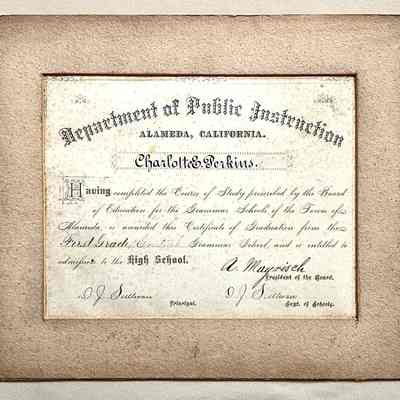 Department of Public Instruction
ALAMEDA, CALIFORNIA.
Charlotte E. Perkins.
Having completed the Course of Study prescribed by the Board
of Education for the Grammar Schools of the Town of
Alameda, is awarded this Certificate of Graduation from the
First Grade, Central Grammar School, and is entitled to
admission to the High School.
A. Mayrisch
President of the Board.
D. J. Sullivan
D. J. Sullivan
Principal.
Supt. of Schools.